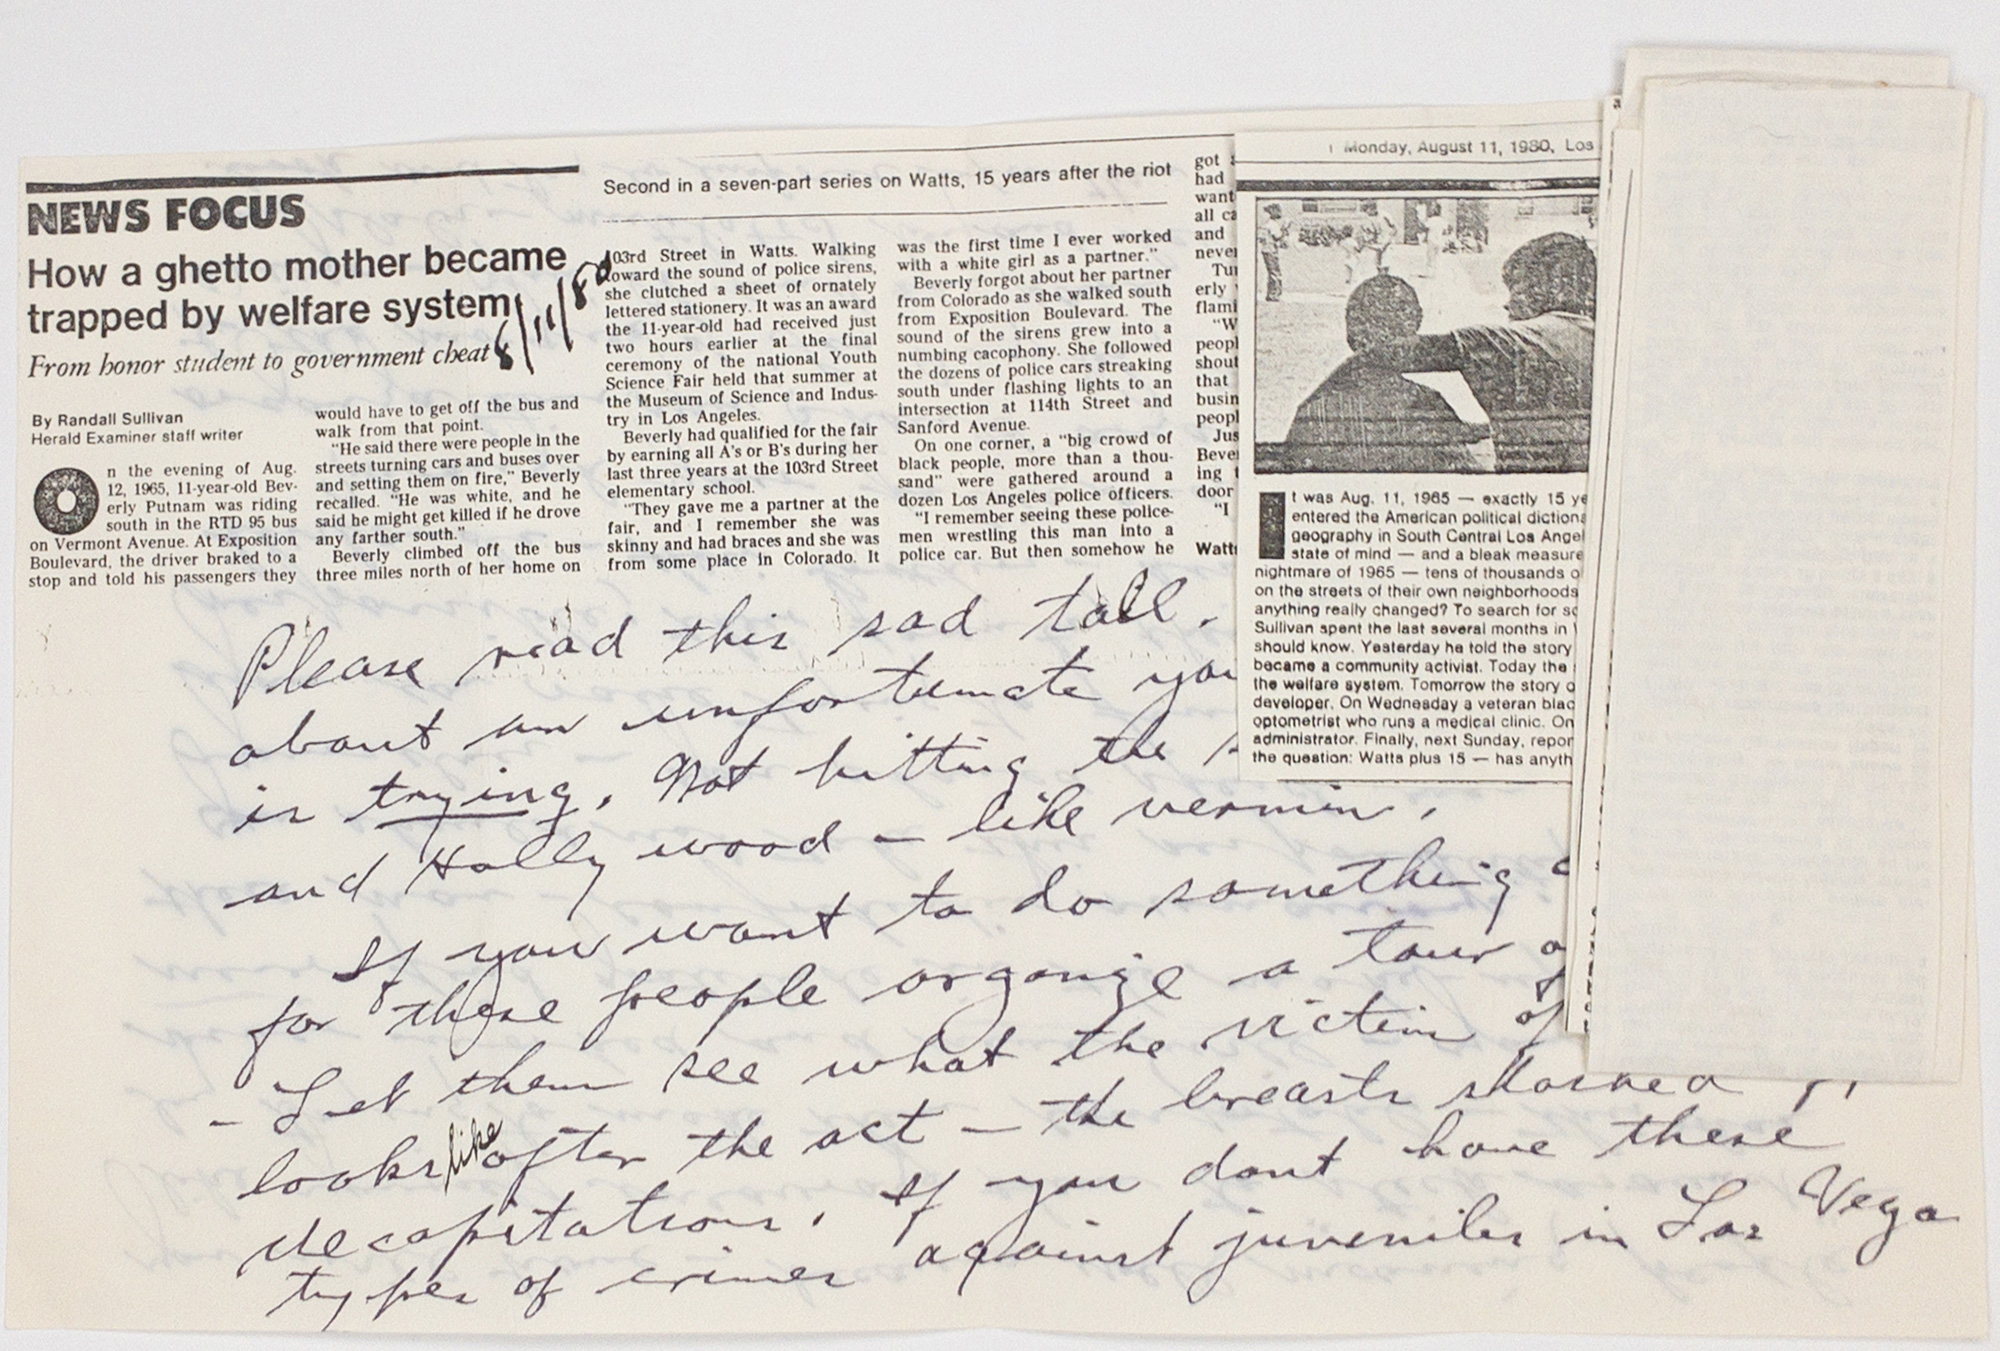 NEWS FOCUS
How a ghetto mother became
trapped by welfare system
From honor student to government cheat
8/11/80
By Randall Sullivan
Herald Examiner staff writer
On the evening of Aug.
12, 1965, 11-year-old Bev-
erly Putnam was riding
south in the RTD 95 bus
on Vermont Avenue. At Exposition
Boulevard, the driver braked to a
stop and told his passengers they
would have to get off the bus and
walk from that point.
"He said there were people in the
streets turning cars and buses over
and setting them on fire," Beverly
recalled. "He was white, and he
said he might get killed if he drove
any farther south."
Beverly climbed off the bus
three miles north of her home on
Second in a seven-part series on Watts, 15 years after the riot
103rd Street in Watts. Walking
toward the sound of police sirens,
she clutched a sheet of ornately
lettered stationery. It was an award
the 11-year-old had received just
two hours earlier at the final
ceremony of the national Youth
Science Fair held that summer at
the Museum of Science and Indus-
try in Los Angeles.
Beverly had qualified for the fair
by earning all A's or B's during her
last three years at the 103rd Street
elementary school.
"They gave me a partner at the
fair, and I remember she was
skinny and had braces and she was
from some place in Colorado. It
was the first time I ever worked
with a white girl as a partner."
Beverly forgot about her partner
from Colorado as she walked south
from Exposition Boulevard. The
sound of the sirens grew into a
numbing cacophony. She followed
the dozens of police cars streaking
south under flashing lights to an
intersection at 114th Street and
Sanford Avenue.
On one corner, a "big crowd of
black people, more than a thou-
sand" were gathered around a
dozen Los Angeles police officers.
"I remember seeing these police-
men wrestling this man into a
police car. But then somehow he
got
had
want
all ca
and
never
Tur
erly
flami
"W
peopl
shout
that
busin
peopl
Jus
Bever
ing
door
"I
Watts
Monday, August 11, 1980, Los
It was Aug. 11, 1965 — exactly 15 ye
entered the American political dictiona
geography in South Central Los Angel
state of mind — and a bleak measure
nightmare of 1965 — tens of thousands o
on the streets of their own neighborhoods
anything really changed? To search for so
Sullivan spent the last several months in
should know. Yesterday he told the story
became a community activist. Today the
the welfare system. Tomorrow the story o
developer. On Wednesday a veteran blac
optometrist who runs a medical clinic. On
administrator. Finally, next Sunday, repor
the question: Watts plus 15 — has anyth
Please read this sad tall.
about an unfortunate you
is trying. Not hitting the s
and Hollywood – like vermin.
If you want to do something
for these people organize a tour of
– Let them see what the victim of
looks like after the act – the breasts
decapitations. If you dont have these
types of crimes against juveniles in Las Vega